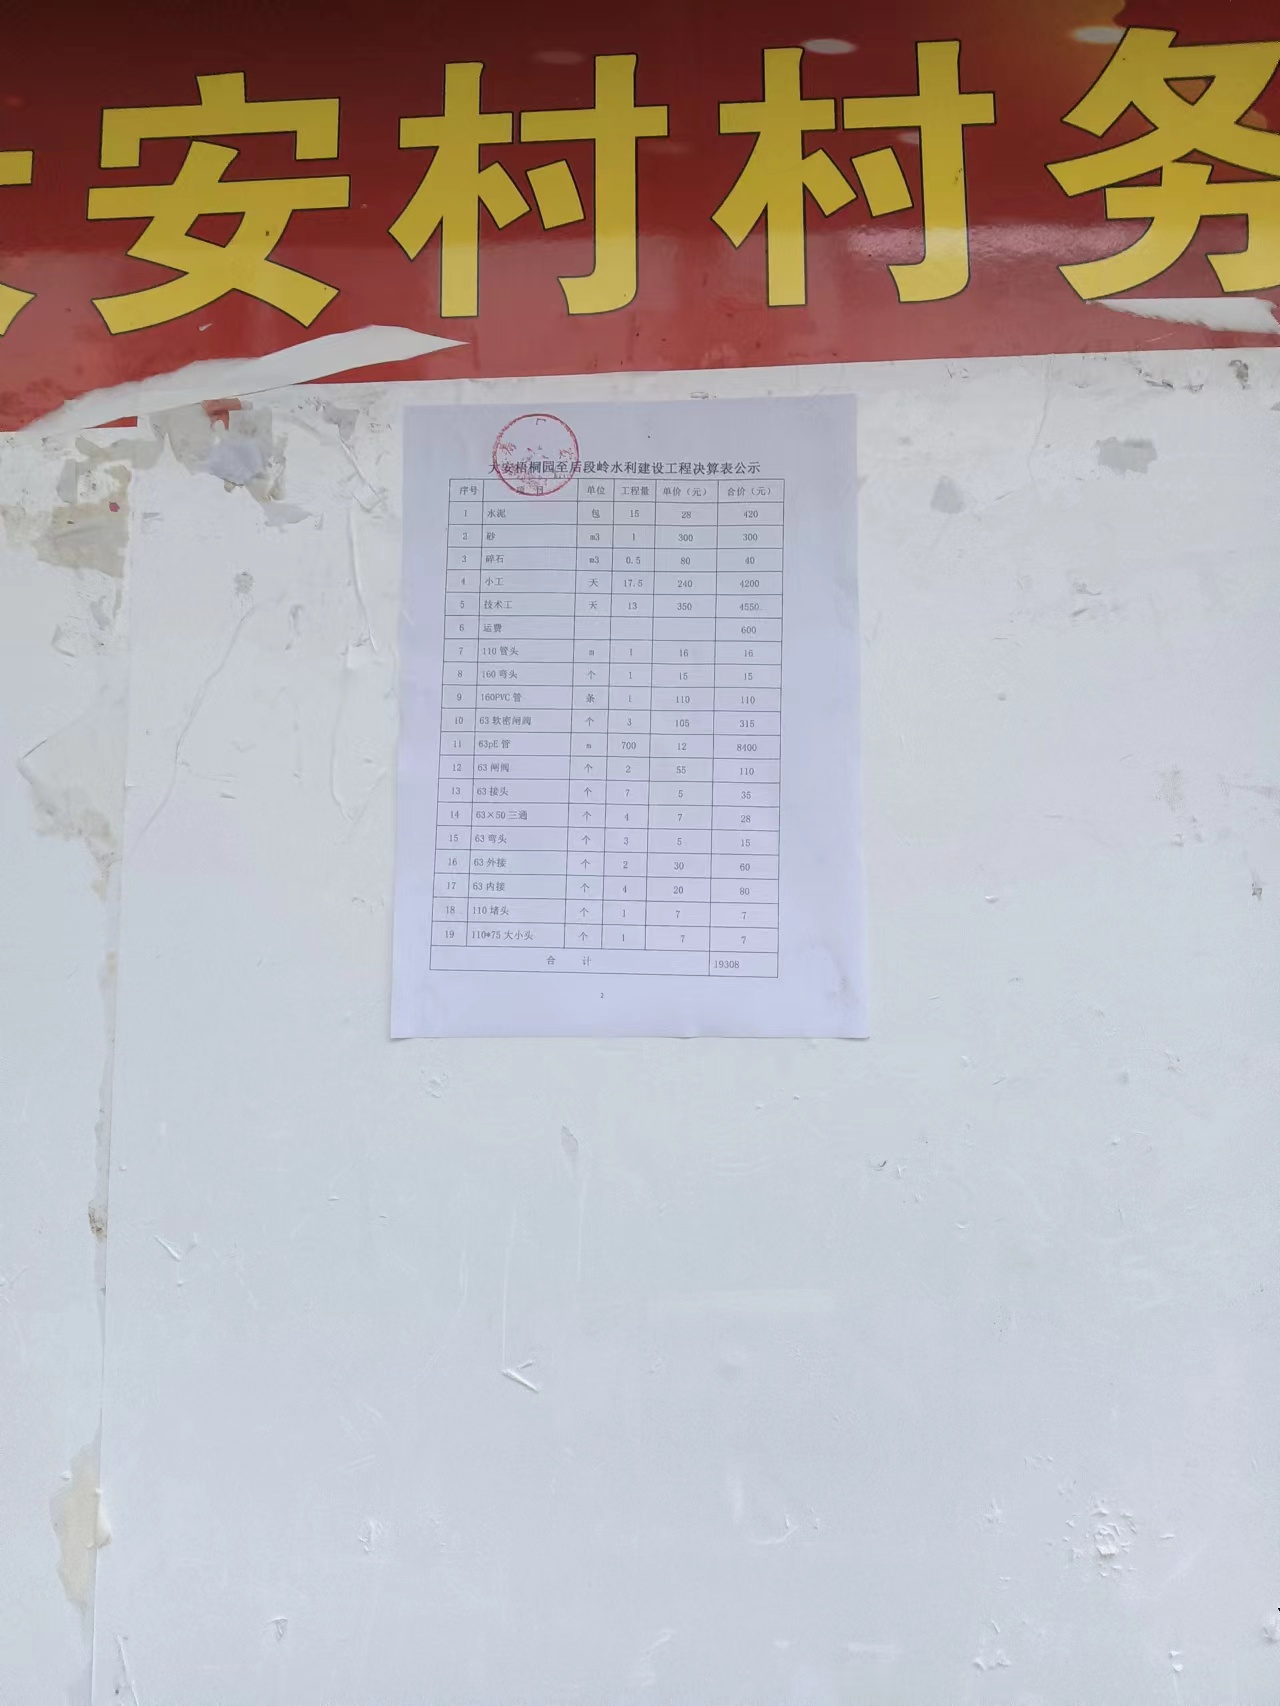 安村村务
大安梧桐园至后段岭水利建设工程决算表公示
序号 项 目 单位 工程量 单价（元） 合价（元）
1 水泥 包 15 28 420
2 砂 m3 1 300 300
3 碎石 m3 0.5 80 40
4 小工 天 17.5 240 4200
5 技术工 天 13 350 4550
6 运费 600
7 110管头 m 1 16 16
8 160弯头 个 1 15 15
9 160PVC管 条 1 110 110
10 63软密闸阀 个 3 105 315
11 63pE管 m 700 12 8400
12 63闸阀 个 2 55 110
13 63接头 个 7 5 35
14 63×50三通 个 4 7 28
15 63弯头 个 3 5 15
16 63外接 个 2 30 60
17 63内接 个 4 20 80
18 110堵头 个 1 7 7
19 110*75大小头 个 1 7 7
合 计 19308
2